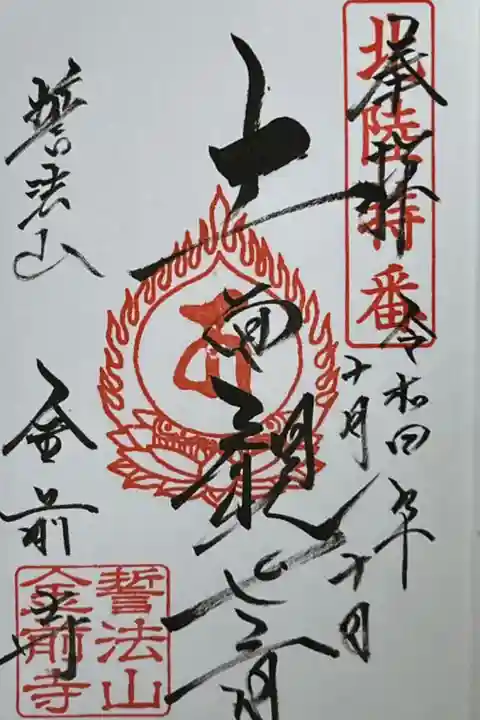 北陸特番
奉拝
令和四年
十月十日
十一面観世音
誓法山
金前寺
誓法山
金前寺